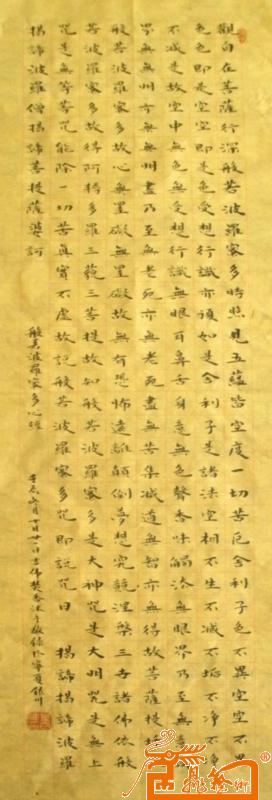 觀自在菩薩行深般若波羅蜜多時照見五蘊皆空度一切苦厄舍利子色不異空空不異
色色即是空空即是色受想行識亦復如是舍利子是諸法空相不生不滅不垢不淨
不減是故空中無色無受想行識無眼耳鼻舌身意無色聲香味觸法無眼界乃至無意
界無無明亦無無明盡乃至無老死亦無老死盡無苦集滅道無智亦無得故菩薩提
般若波羅蜜多故心無罣礙無罣礙故無有恐怖遠離顛倒夢想究竟涅槃三世諸佛依般
若波羅蜜多故得阿耨多羅三藐三菩提故知般若波羅蜜多是大神咒是大明咒是無上
咒是無等等咒能除一切苦真實不虛故說般若波羅蜜多咒即說咒曰 揭諦揭諦波羅
揭諦波羅僧揭諦菩提薩婆訶
般若波羅蜜多心經
壬辰 月 日 敬錄於寧夏銀川